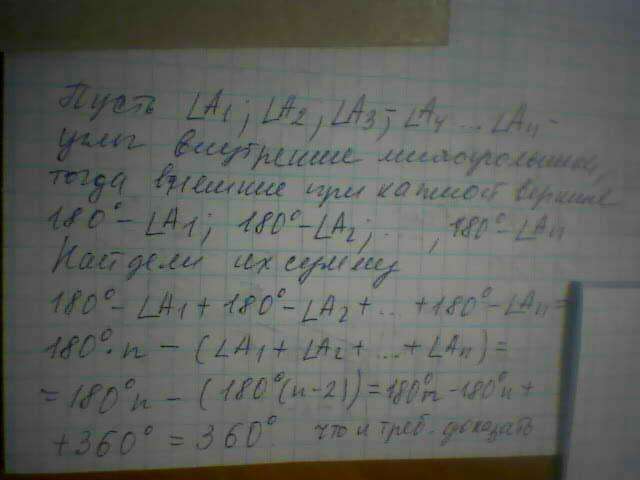 Пусть ∠A1; ∠A2, ∠A3; ∠A4 ... ∠An -
углы внутренние многоугольника,
тогда внешние при каждой вершине
180° - ∠A1; 180° - ∠A2; ... , 180° - ∠An
Найдем их сумму
180° - ∠A1 + 180° - ∠A2 + ... + 180° - ∠An =
180° · n - (∠A1 + ∠A2 + ... + ∠An) =
= 180°n - (180°(n-2)) = 180°n - 180°n +
+ 360° = 360°. что и треб. доказать